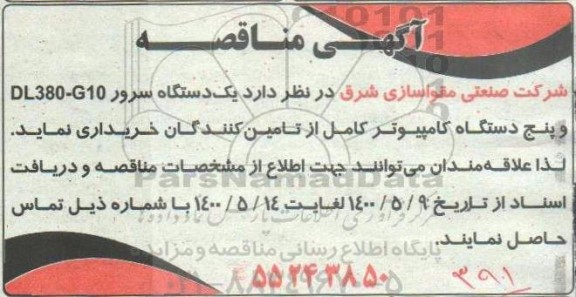 آگهی مناقصه
شرکت صنعتی مقواسازی شرق در نظر دارد یک دستگاه سرور DL380-G10
و پنج دستگاه کامپیوتر کامل از تامین‌کنندگان خریداری نماید.
لذا علاقه‌مندان می‌توانند جهت اطلاع از مشخصات مناقصه و دریافت
اسناد از تاریخ ۱۴۰۰/۵/۹ لغایت ۱۴۰۰/۵/۱۴ با شماره ذیل تماس
حاصل نمایند.
ParsNamadData
پایگاه اطلاع رسانی مناقصه و مزایده
۵۵۲۴۳۸۵۰
۳۹۱